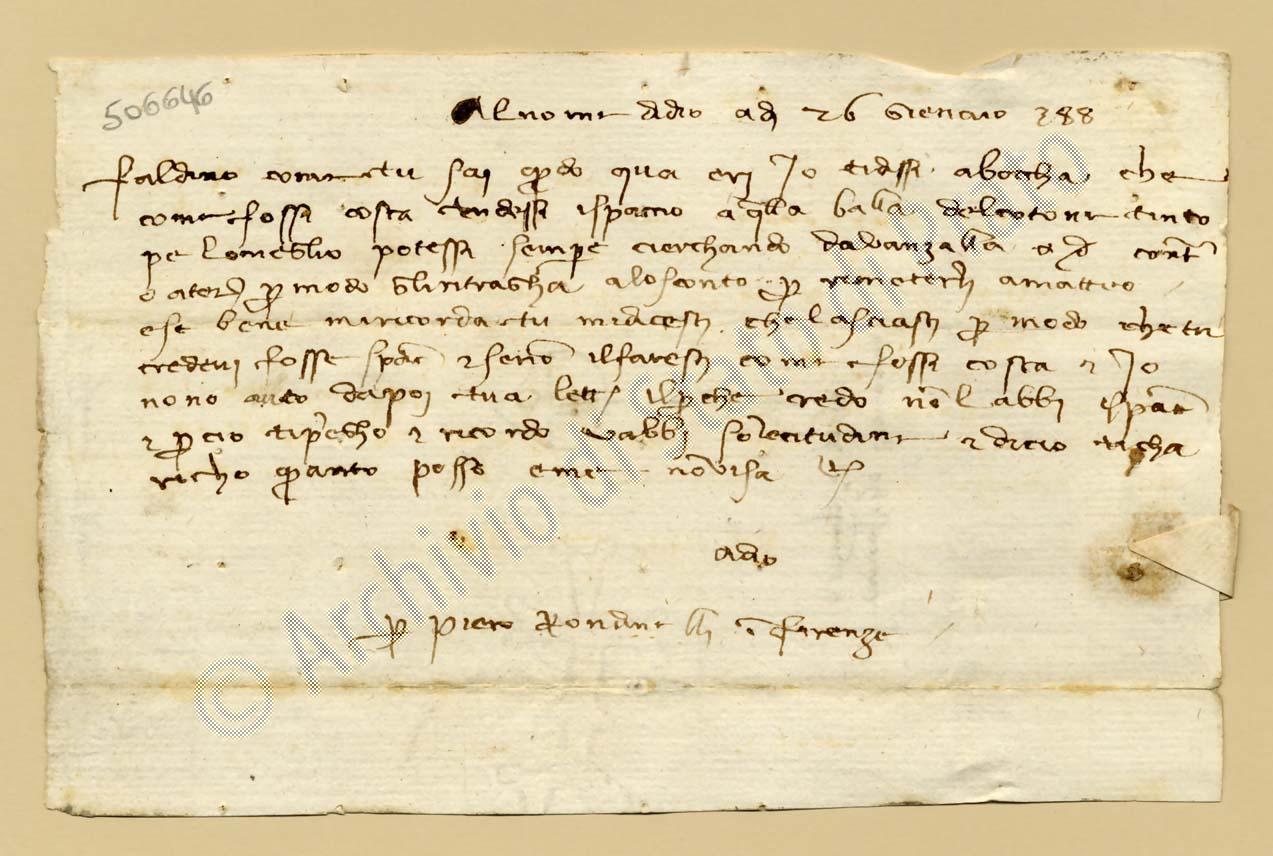 506646
Al nome didio adj 26 Giennaio 388
faldino come tu sai qndo qua erj Jo tidissi abocha che
come fossi costa tu dessi ispaccio a qlla balla del cotone tinto
pe lo meglio potessi senpre cierchando davanzalla e cont
o a ter p modo gli ritragha alo sconto p rimeterlj a matteo
e se bene mi ricorda tu mi dicestj che la sciastj p modo che tu
credevj fosse spac e se no il farestj come fossi costa e Jo
nonno auto dapoj tua lett il pche credo no labbi ispac
e p cio ti priegho e ricordo vabbj solecitudine e di cio ticha
richo quanto posso e me navisa
adio
p piero Rondinellj i firenze
© Archivio di Stato di Prato